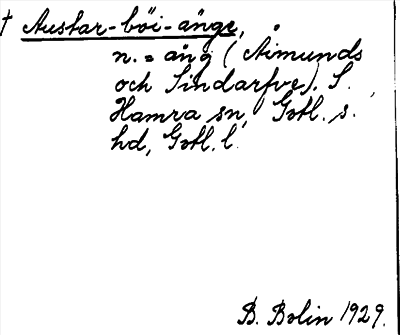 † Austar-böi-änge,
n. = äng (Åimunds
och Sindarfve). S.
Hamra sn, Gotl. s.
hd, Gotl. l.
B. Bolin 1929.